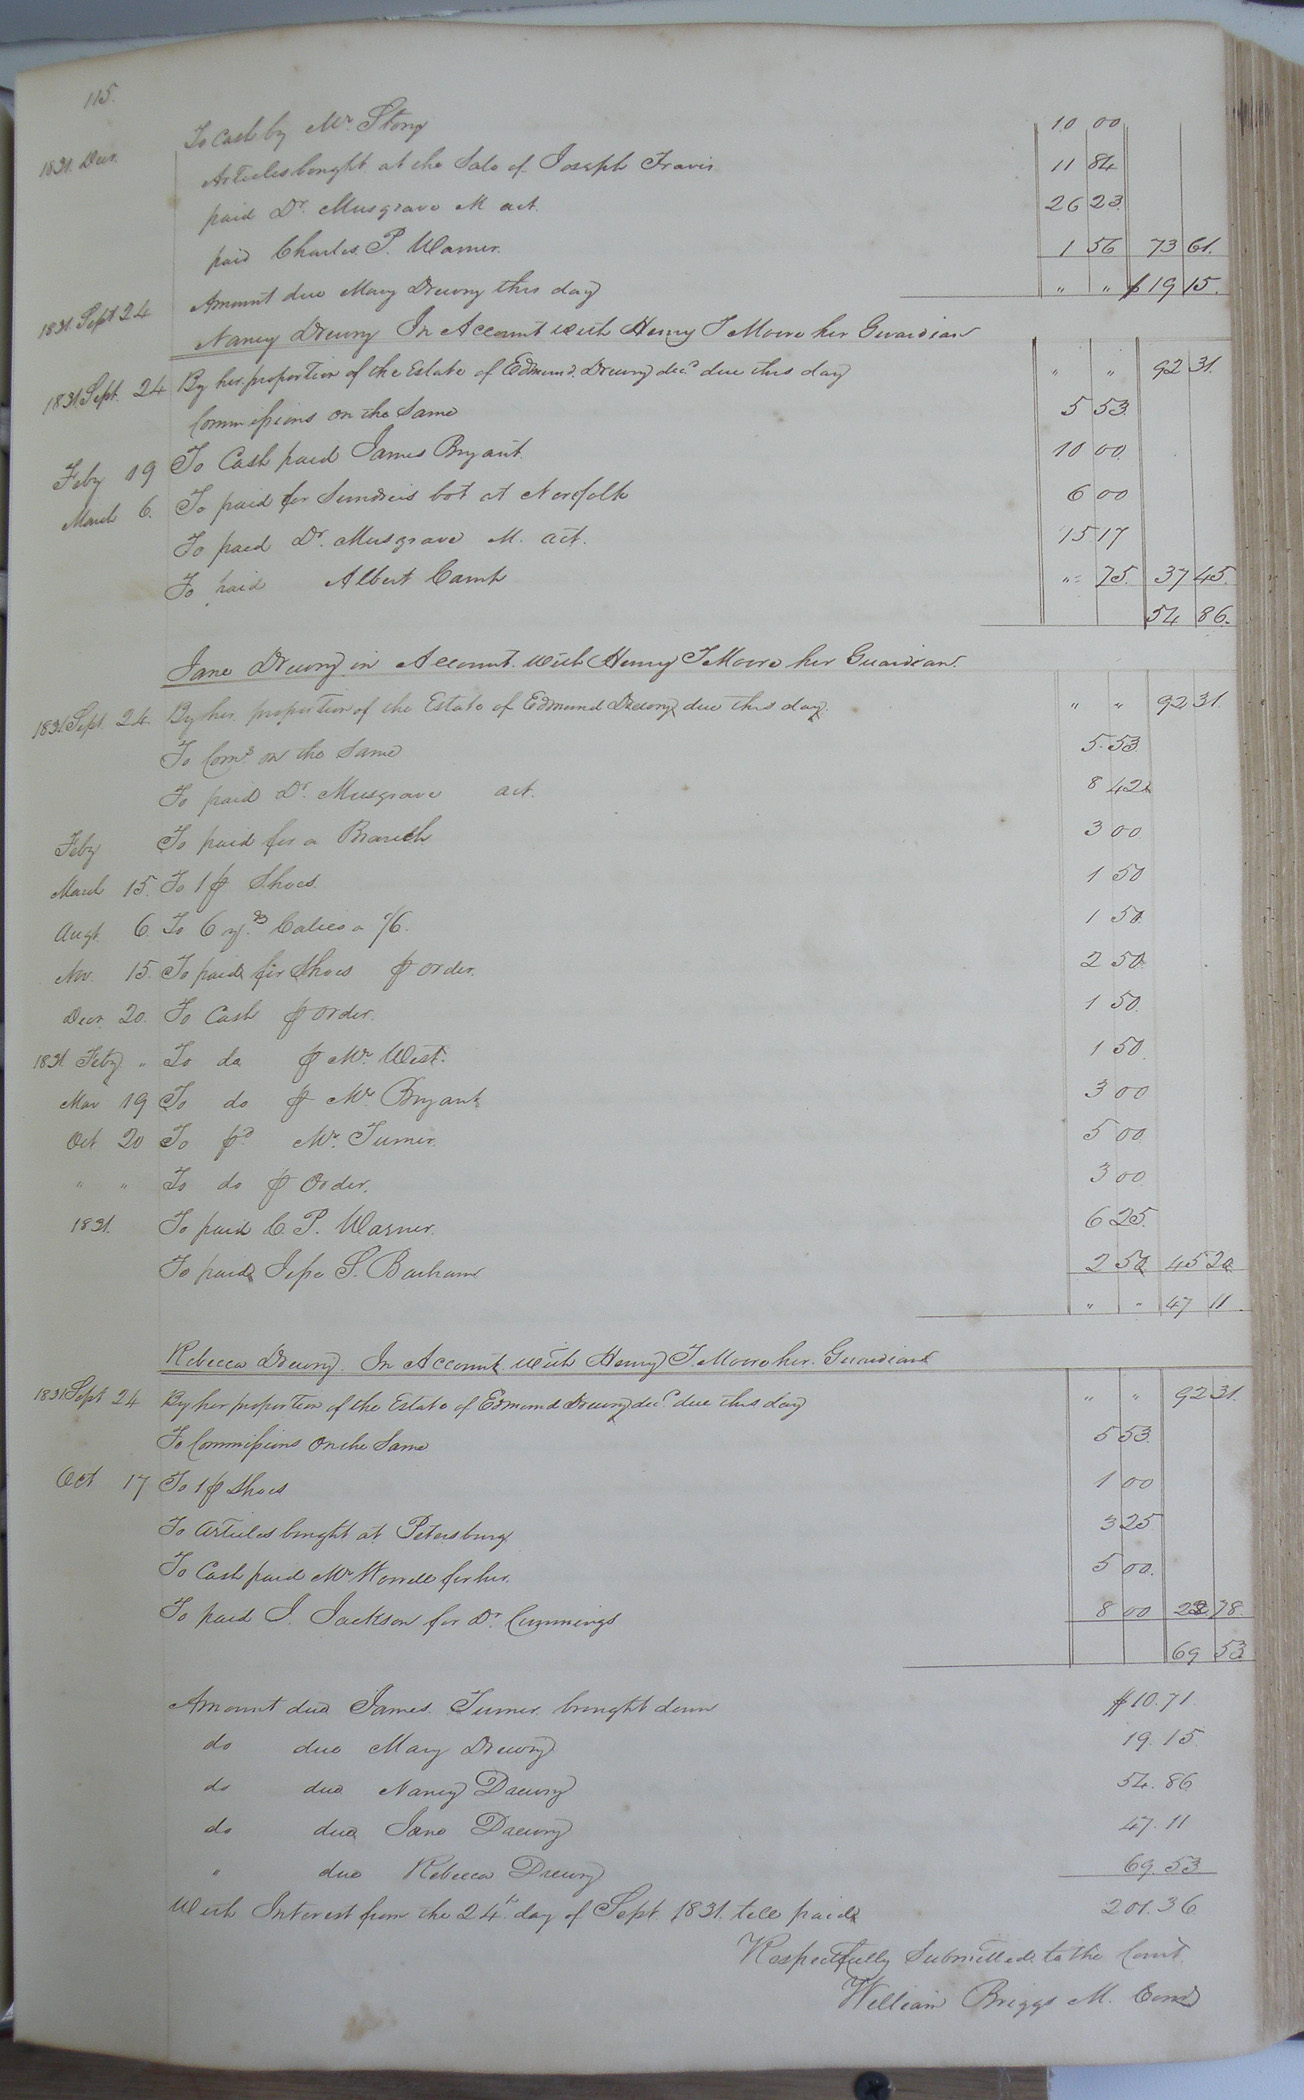 115.
To Cash by Mr. Story 10 00
1831. Decr. Articles bought at the Sale of Joseph Travis 11 84
paid Dr. Musgrave M act. 26 23.
paid Charles. P. Warner. 1 56 73 61.
1831 Sept 24 Amount due Mary Drewry this day " " $19 15.
Nancy Drewry In Account with Henry T Moore her Guardian
1831 Sept. 24 By her proportion of the Estate of Edmund. Drewry decd due this day " " 92 31.
Commissions on the Same 5 53
Feby 19 To Cash paid James Bryant 10 00
March 6. To paid for Sundries bot at Norfolk 6 00
To paid Dr. Musgrave M. act. 15 17
To paid Albert Camp " 75. 37 45.
54 86.
Jane Drewry in Account with Henry T Moore her Guardian.
1831 Sept 24. By her proportion of the Estate of Edmund Drewry due this day. " " 92 31.
To Coms. on the Same 5. 53
To paid Dr. Musgrave act. 8 42
Feby To paid for a 3 00
March 15. To 1 p Shoes 1 50
Augt. 6. To 6 yds Calico a /6. 1 50
Nov. 15. To paid for Shoes p order. 2 50
Decr. 20. To Cash p order. 1 50
1831 Feby " To do p Mr. West. 1 50
Mar 19 To do p Mr. Bryant 3 00
Oct 20 To pd Mr. Turner. 5 00
" " To do p Order. 3 00
1831. To paid C. P. Warner. 6 25.
To paid Jesse S. Barham 2 50 45 20
" " 47 11.
Rebecca Drewry. In Account with Henry T. Moore her. Guardian
1831 Sept 24 By her proportion of the Estate of Edmund Drewry decd due this day " " 92 31.
To Commissions On the Same 5 53.
Oct 17 To 1 p Shoes 1 00
To Articles bought at Petersburg 3 25
To Cash paid Mr Worrell for her. 5 00.
To paid J. Jackson for Dr. Cummings 8 00 22 78.
69 53
Amount due James. Turner. brought down $10.71.
do due Mary Drewry 19.15.
do due Nancy Drewry 54.86
do due Jane Drewry 47.11
" due Rebecca Drewry 69.53
With Interest from the 24th day of Sept. 1831. till paid 201.36
Respectfully Submitted to the Court.
William Briggs M. Comr